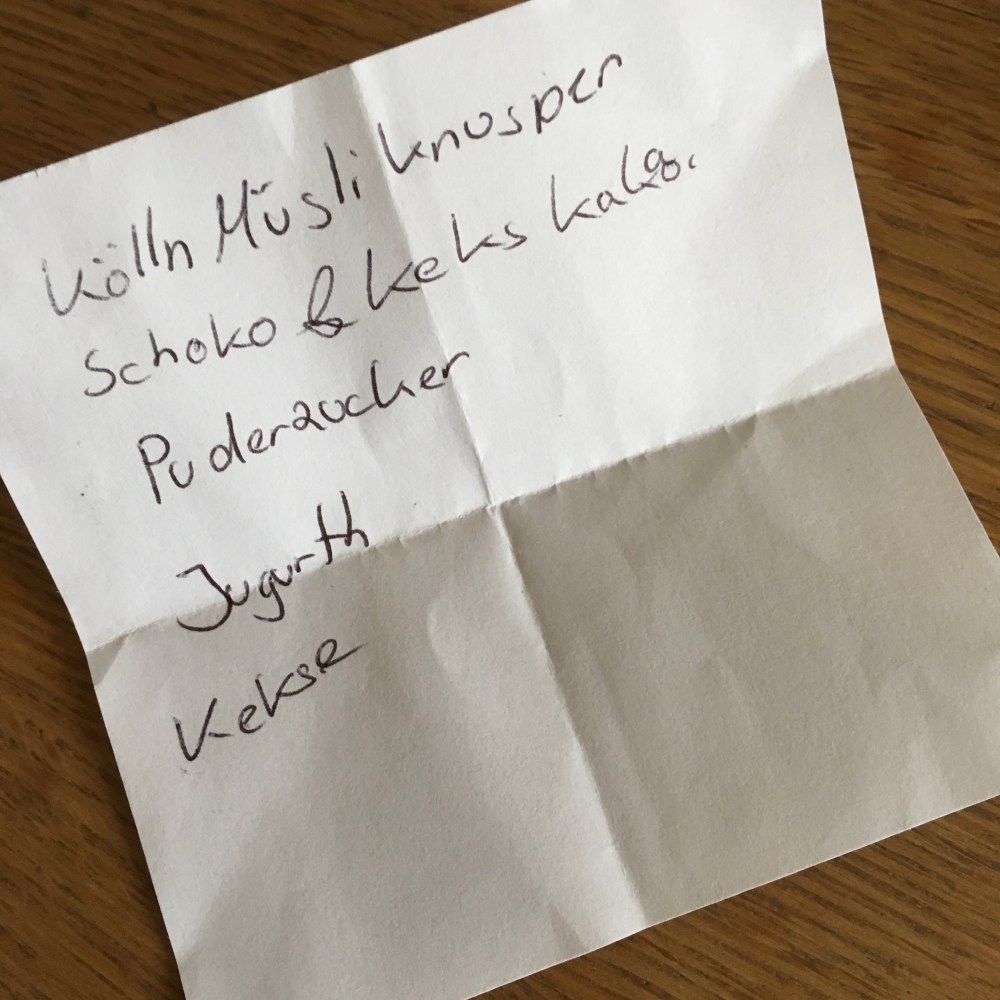 Kölln Müsli knusper
Schoko & Keks kakao.
Puderzucker
Jugurth
Kekse